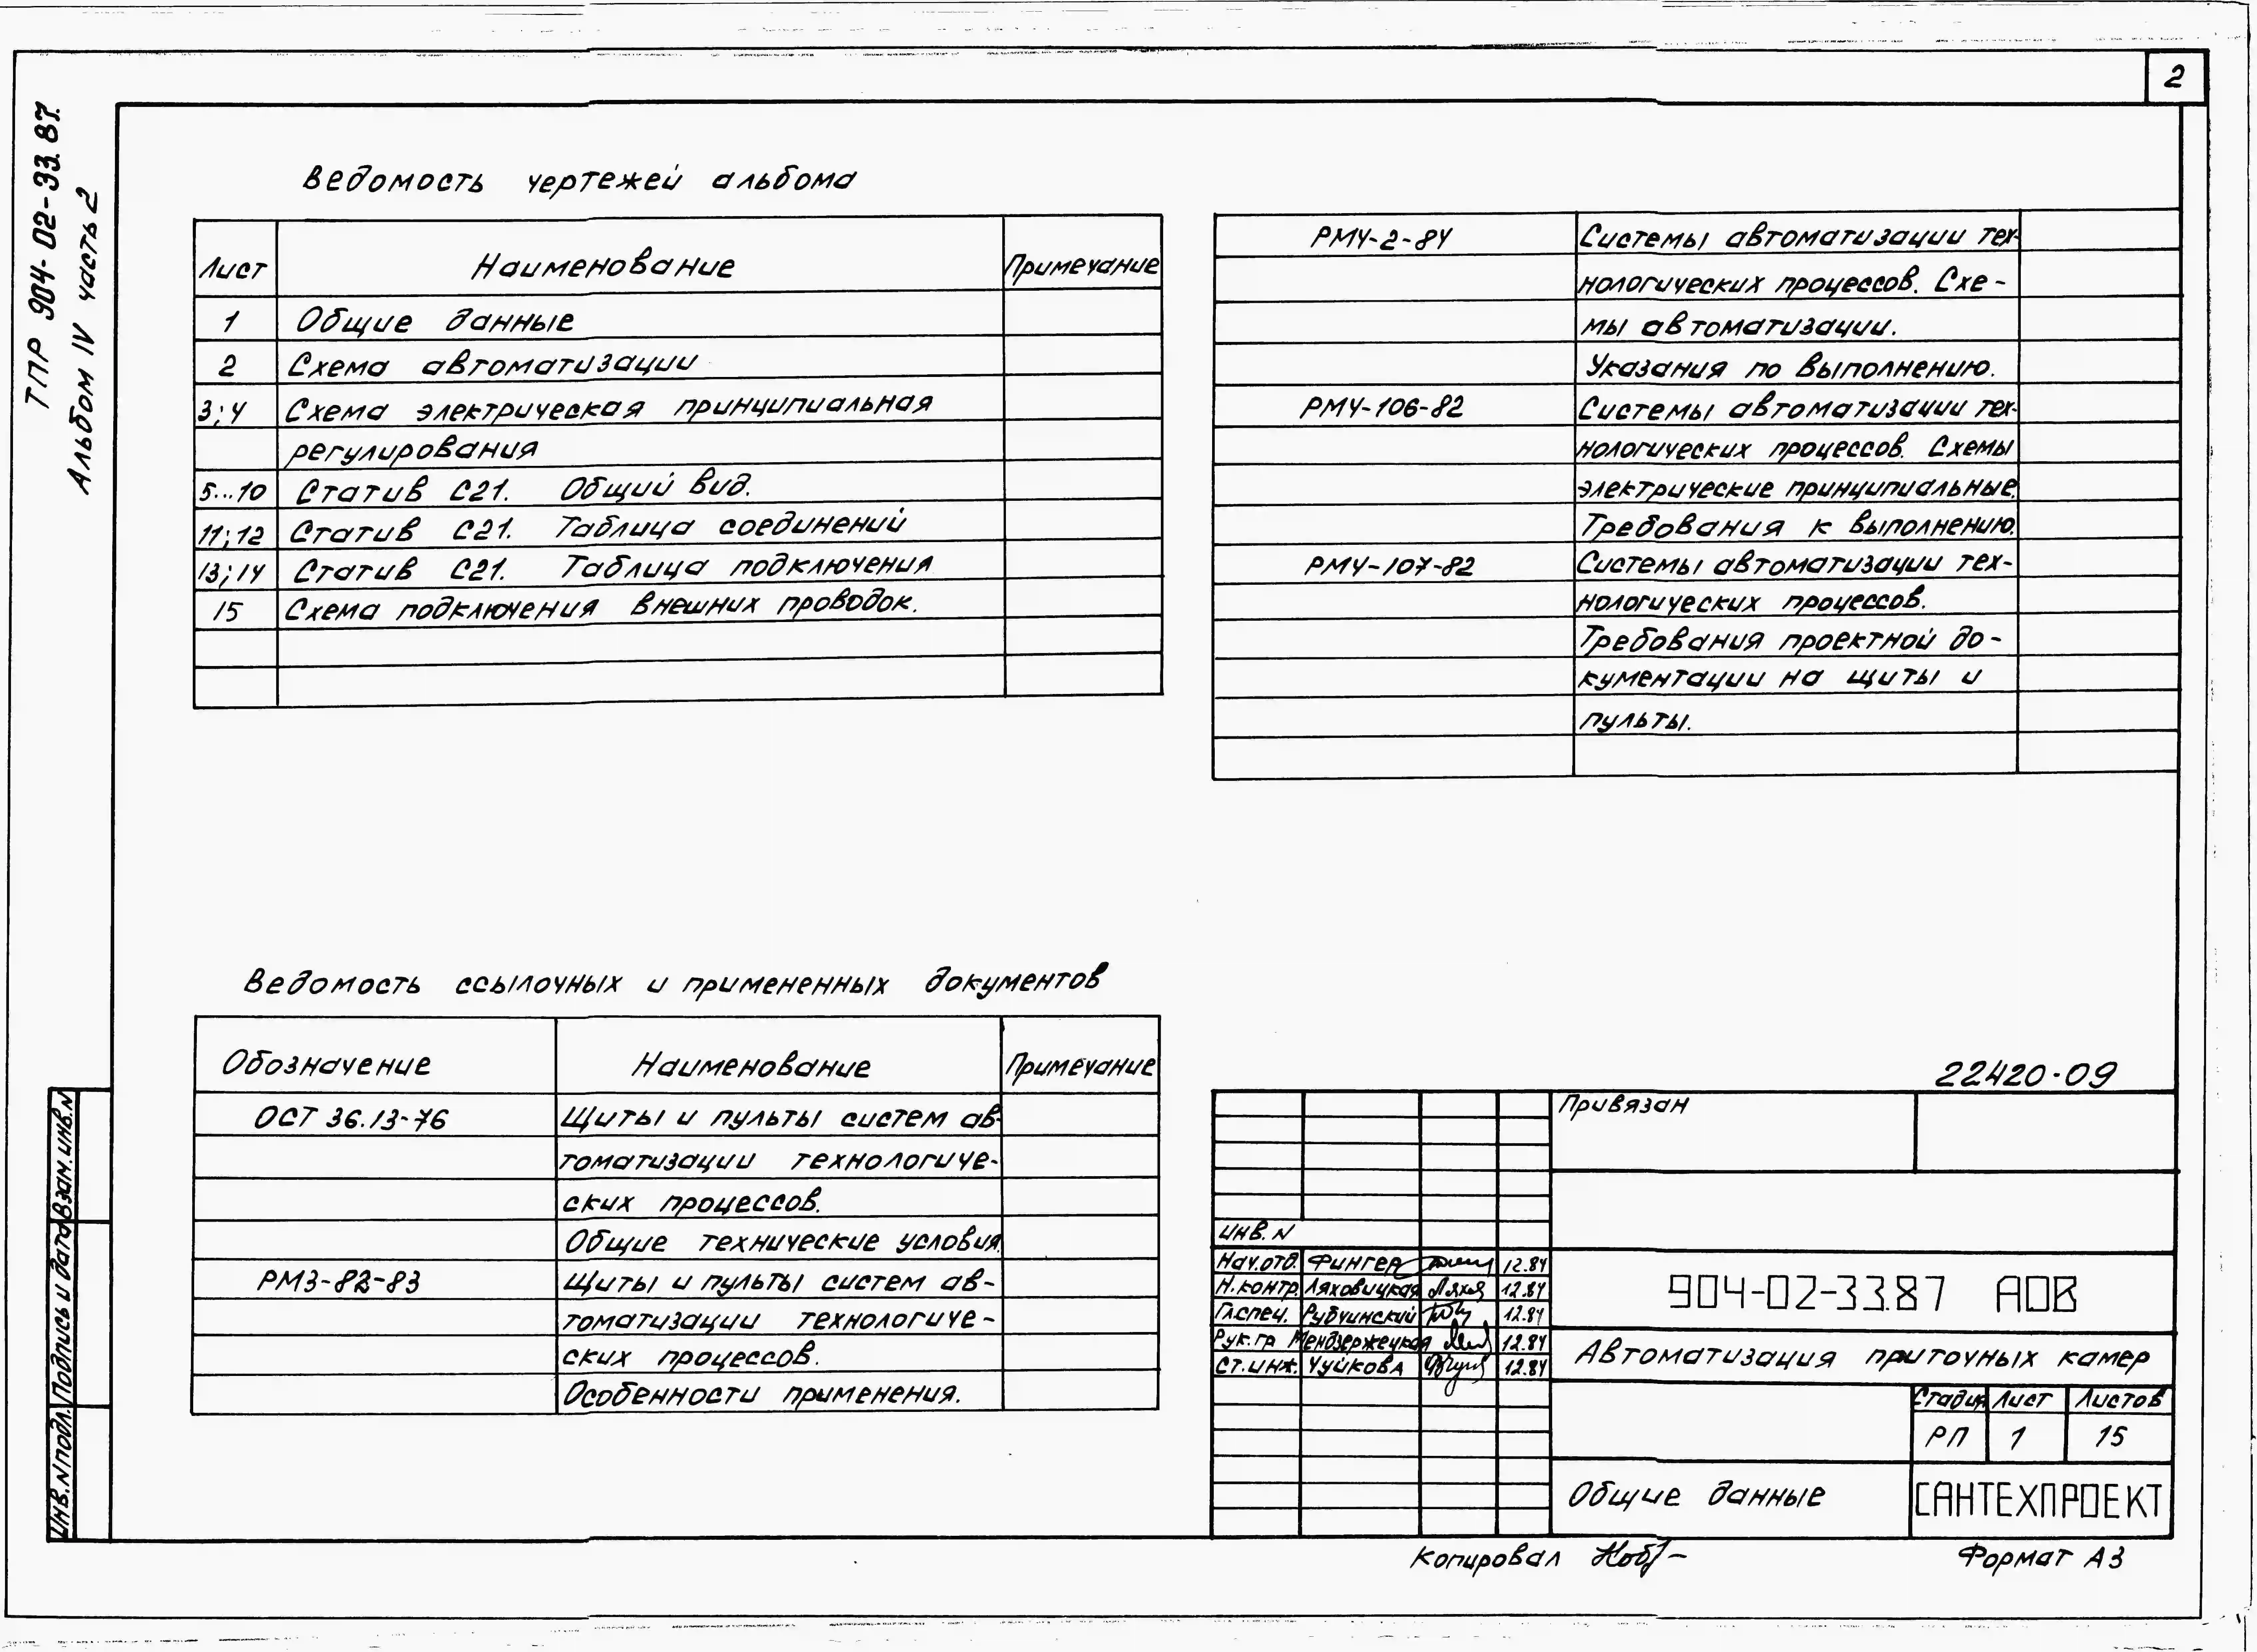 2
ТПР 904-02-33.87.
Альбом IV часть 2
Ведомость чертежей альбома
Лист Наименование Примечание
1 Общие данные
2 Схема автоматизации
3;4 Схема электрическая принципиальная
регулирования
5...10 Статив С21. Общий вид.
11;12 Статив С21. Таблица соединений
13;14 Статив С21. Таблица подключения
15 Схема подключения внешних проводок.
РМ4-2-84 Системы автоматизации тех-
нологических процессов. Схе-
мы автоматизации.
Указания по выполнению.
РМ4-106-82 Системы автоматизации тех-
нологических процессов. Схемы
электрические принципиальные.
Требования к выполнению.
РМ4-107-82 Системы автоматизации тех-
нологических процессов.
Требования проектной до-
кументации на щиты и
пульты.
Ведомость ссылочных и примененных документов
Обозначение Наименование Примечание
ОСТ 36.13-76 Щиты и пульты систем ав-
томатизации технологиче-
ских процессов.
Общие технические условия.
РМ3-82-83 Щиты и пульты систем ав-
томатизации технологиче-
ских процессов.
Особенности применения.
22420-09
Привязан
Инв. N
Нач.отд. Фингер 12.84
Н.контр. Ляховицкая 12.84
Гл.спец. Рубчинский 12.84
Рук.гр Мендзержецкая 12.84
Ст.инж. Чуйкова 12.84
904-02-33.87 АОВ
Автоматизация приточных камер
Стадия Лист Листов
РП 1 15
Общие данные
САНТЕХПРОЕКТ
Инв.N подл. Подпись и дата Взам.инв.N
Копировал
Формат А3